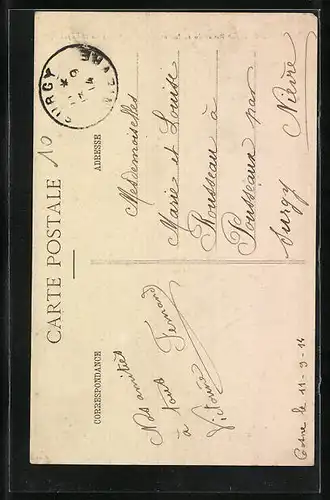 CARTE POSTALE
CORRESPONDANCE
ADRESSE
10
SURGY
NIEVRE
Nos amitiés
à tous Fernand
Victorine
Cosne le 11-9-14
Mesdemoiselles
Marie et Louise
Rousseau à
Pousseaux par
Surgy Nièvre